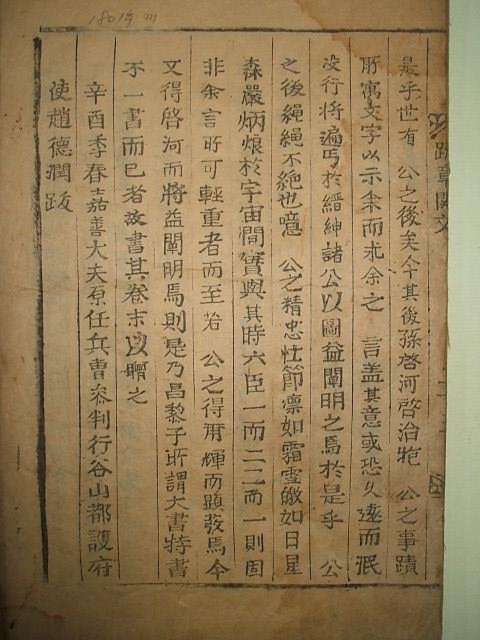 1801年
是乎世有 公之後矣今其後孫啓河啓治抱 公之事蹟
所寓文字以示余而求余之 言盖其意或恐久遠而泯
没行將遍丐於縉紳諸公以圖益闡明之焉於是乎 公
之後繩繩不絶也噫 公之精忠壮節凛如霜雪皦如日星
森嚴炳烺於宇宙間實與其時六臣一而二二而一則固
非余言所可輕重者而至若 公之得所輝而顕敭焉今
文得啓河而將益闡明焉則是乃昌黎子所謂大書特書
不一書而已者故書其卷末以贈之
辛酉季春嘉善大夫原任兵曹参判行谷山都護府
使趙德潤跋